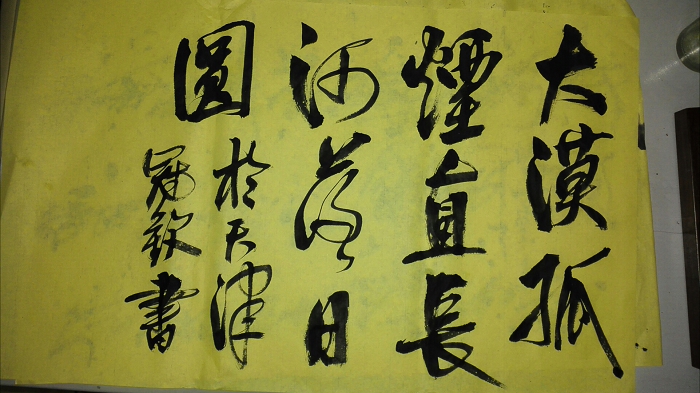 大漠孤
煙直長
河落日
圓
於天津
冠欽書